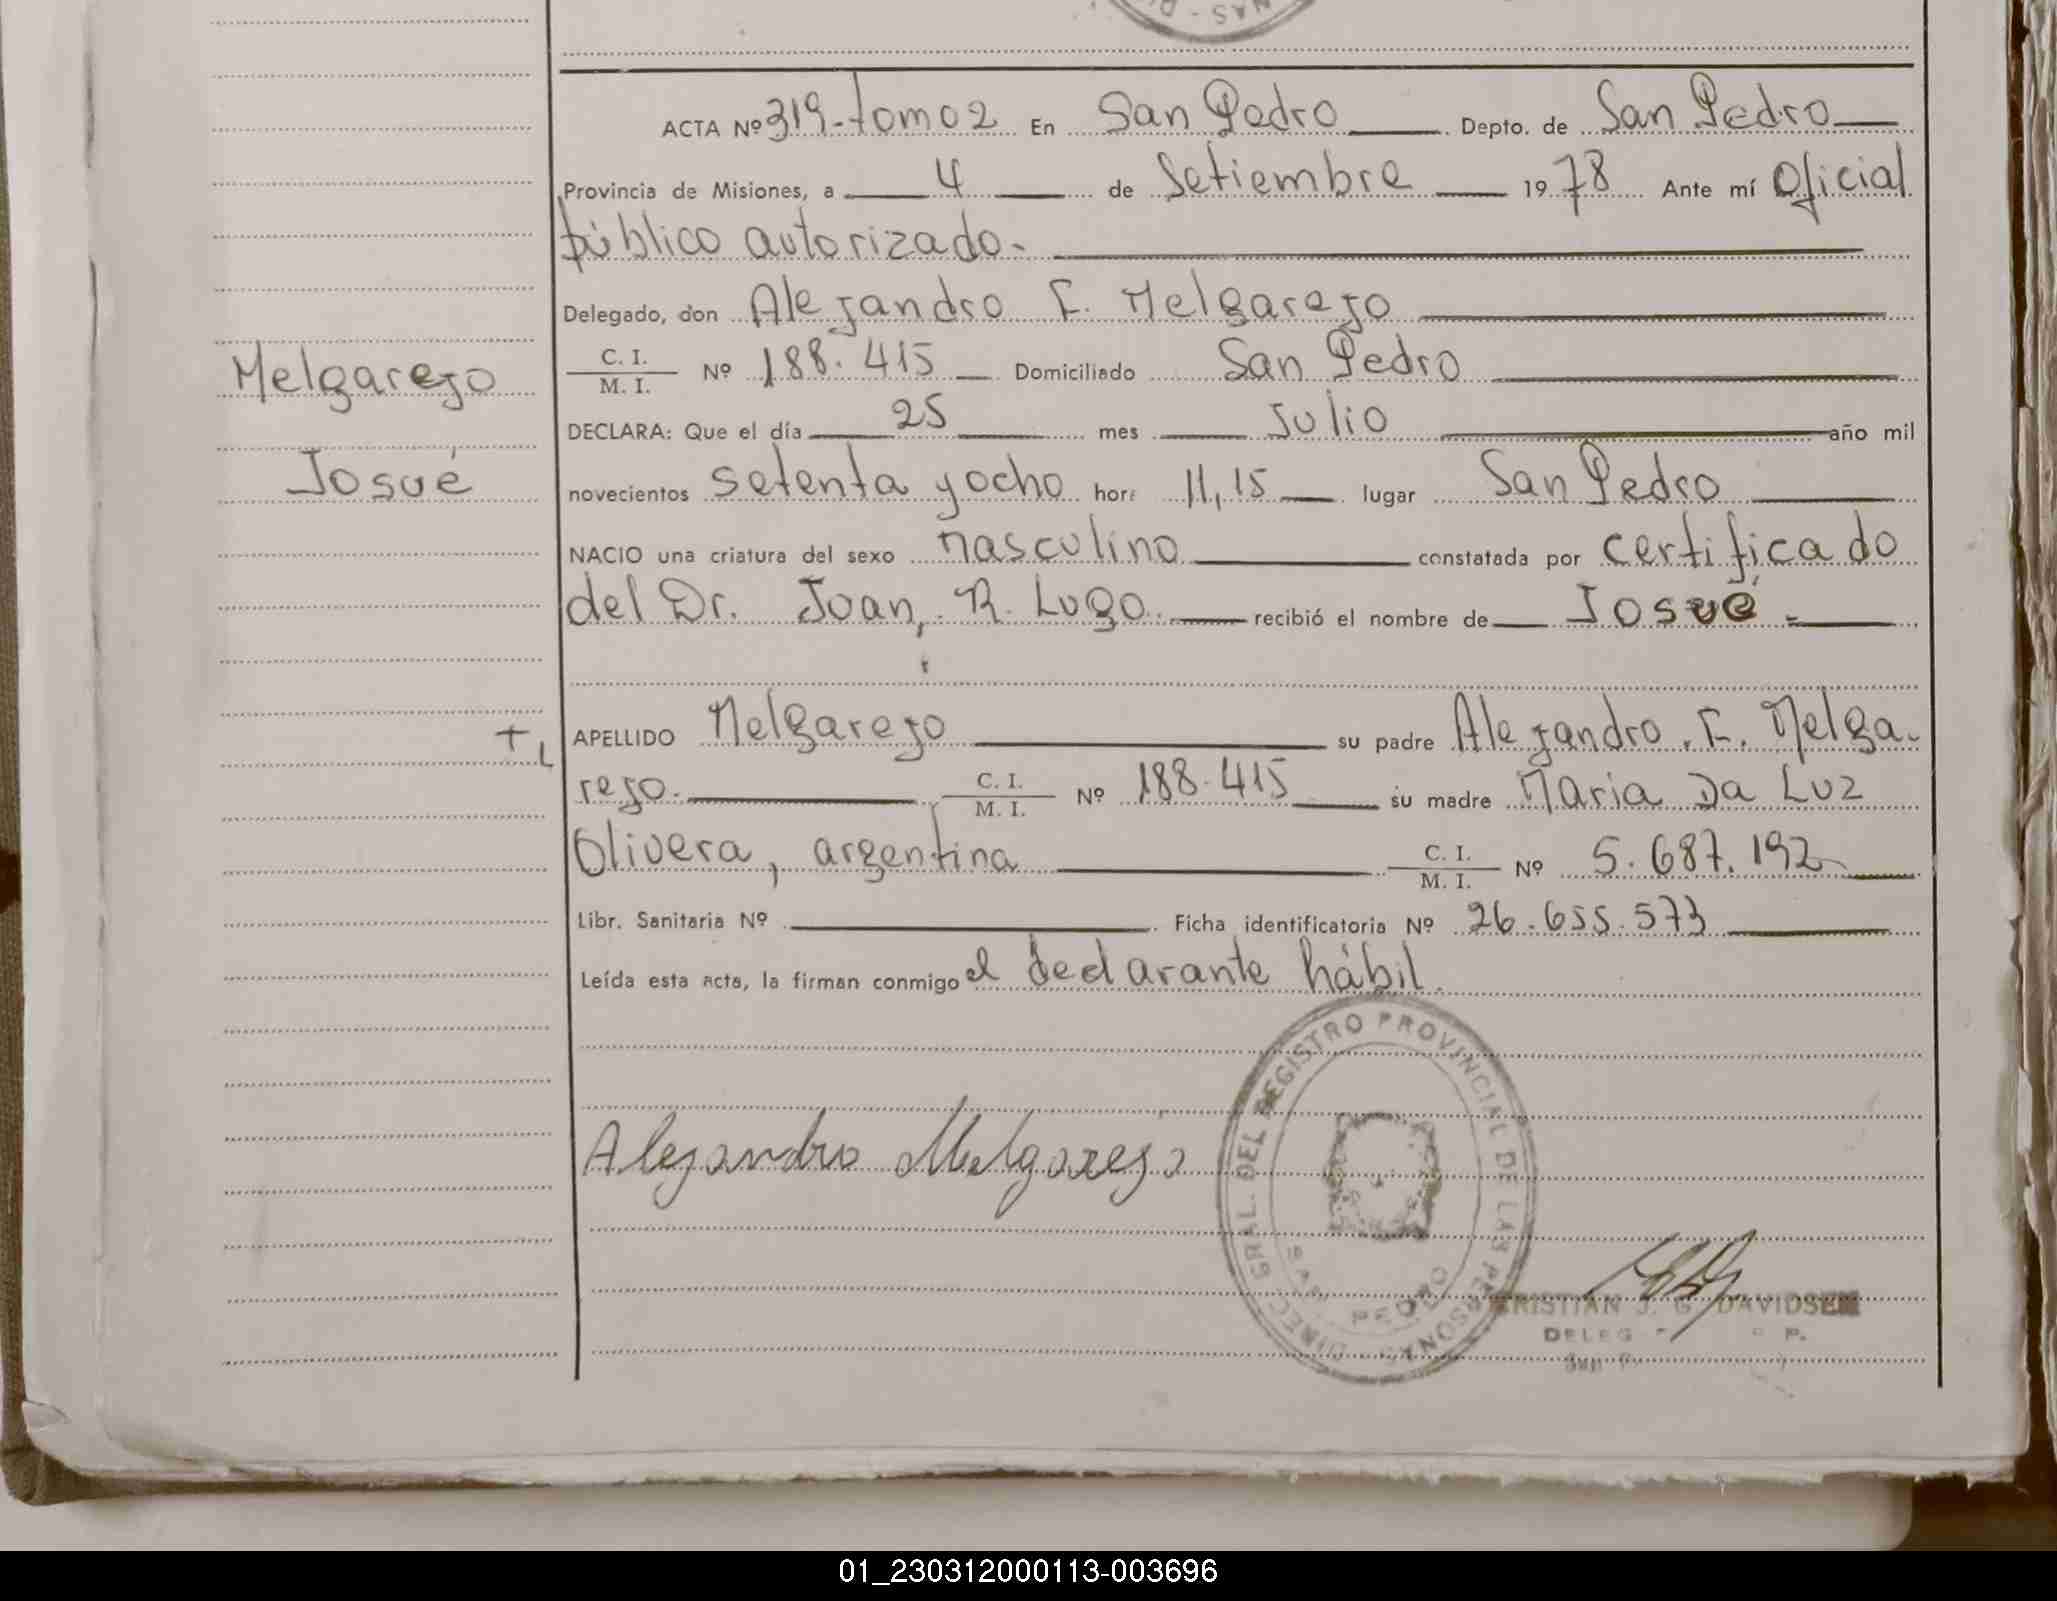 NAS - D
ACTA Nº 319-tomo 2 En San Pedro Depto. de San Pedro
Provincia de Misiones, a 4 de Setiembre 1978 Ante mí Oficial
público autorizado.
Delegado, don Alejandro F. Melgarejo
C. I. / M. I. Nº 188.415 Domiciliado San Pedro
Melgarejo
DECLARA: Que el día 25 mes Julio año mil
Josué
novecientos setenta y ocho hora 11,15 lugar San Pedro
NACIO una criatura del sexo masculino constatada por certificado
del Dr. Juan, R. Lugo. recibió el nombre de Josué.-
APELLIDO Melgarejo su padre Alejandro. F. Melga-
rejo. C. I. / M. I. Nº 188.415 su madre Maria Da Luz
Olivera, argentina C. I. / M. I. Nº 5.687.192
Libr. Sanitaria Nº Ficha identificatoria Nº 26.655.573
Leída esta acta, la firman conmigo el declarante hábil.
Alejandro Melgarejo
DIREC. GRAL. DEL REGISTRO PROVINCIAL DE LAS PERSONAS
PEDRO
KRISTIAN J. G. DAVIDSEN
01_230312000113-003696